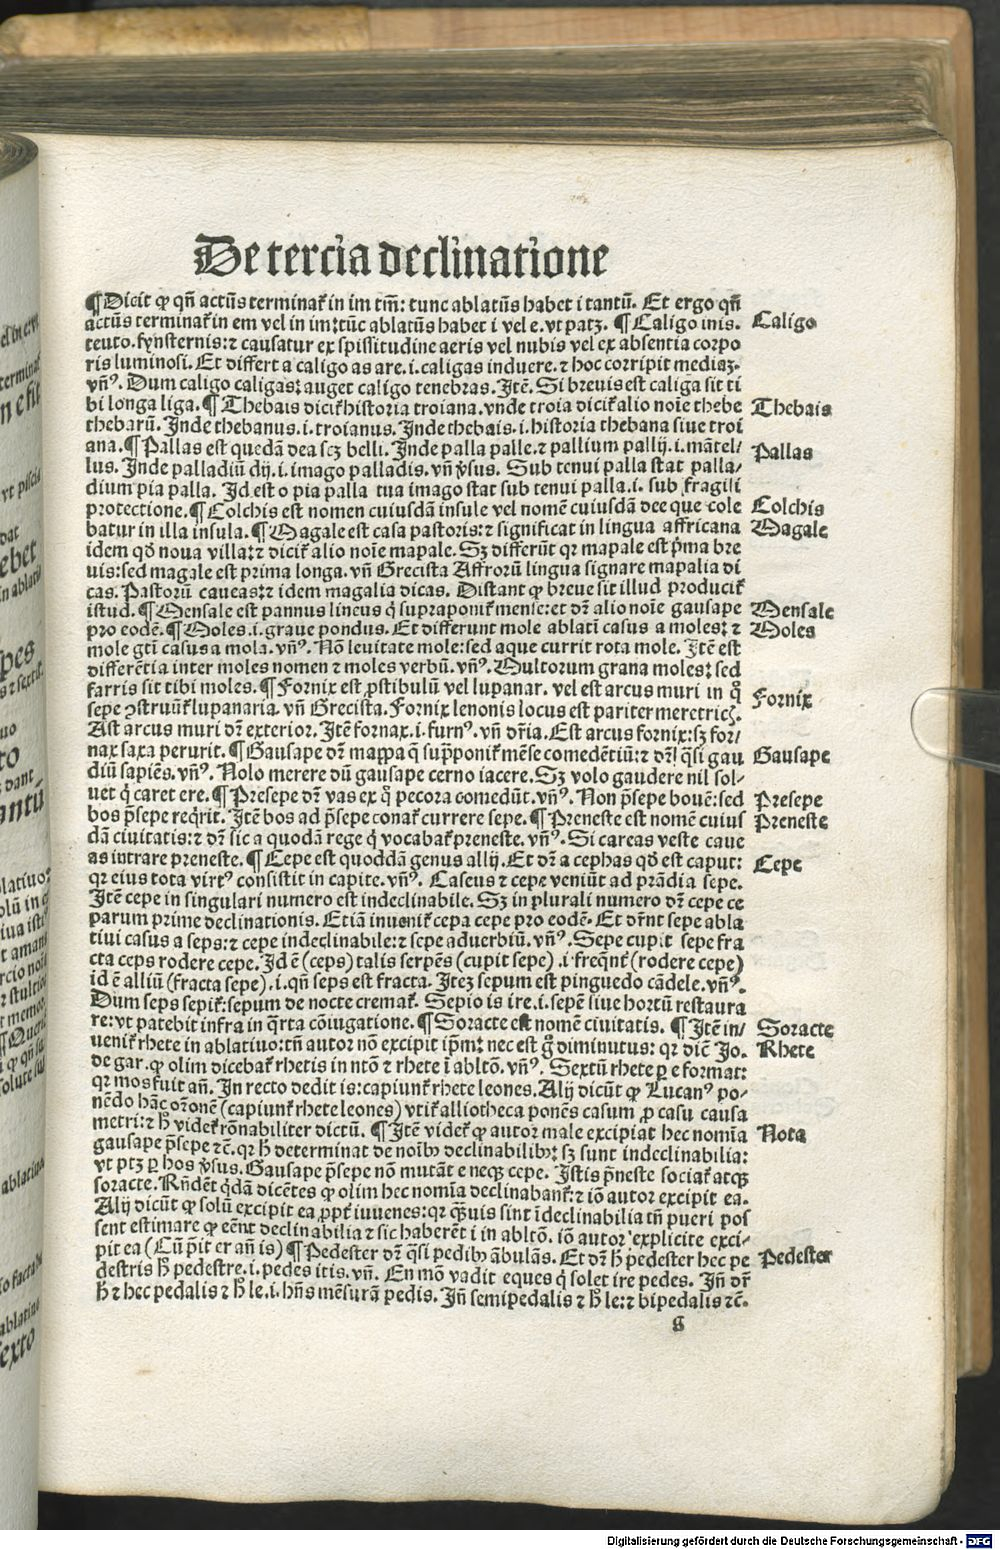 De tercia declinatione
¶Dicit ꝙ qñ actũs terminat᷑ in im tm̃: tunc ablatũs habet i tantũ. Et ergo qñ
actũs terminat᷑ in em vel in im: tũc ablatũs habet i vel e. vt patꝫ. ¶Caligo inis.
Caligo
teuto. fynsternis: ⁊ causatur ex spissitudine aeris vel nubis vel ex absentia corpo
ris luminosi. Et differt a caligo as are. i. caligas induere. ⁊ hoc corripit mediaꝫ.
vñꝰ. Dum caligo caligas: auget caligo tenebras. Itẽ. Si brevis est caliga sit ti
bi longa liga. ¶Thebais dicit᷑ historia troiana. vnde troia dicit᷑ alio noĩe thebe
Thebais
thebarũ. Inde thebanus. i. troianus. Inde thebais. i. historia thebana siue troi
ana. ¶Pallas est quedã dea scꝫ belli. Inde palla palle. ⁊ pallium pallij. i. mãtel⸗
Pallas
lus. Inde palladiũ dij. i. imago palladis. vñ ṽsus. Sub tenui palla stat palla⸗
dium pia palla. Id est o pia palla tua imago stat sub tenui palla. i. sub fragili
protectione. ¶Colchis est nomen cuiusdã insule vel nomẽ cuiusdã dee que cole
Colchis
batur in illa insula. ¶Magale est casa pastoris: ⁊ significat in lingua affricana
Magale
idem qđ noua villa: ⁊ dicit᷑ alio noĩe mapale. Sꝫ differũt qꝛ mapale est p̃ma bre
uis: sed magale est prima longa. vñ Grecista Affrorũ lingua signare mapalia di
cas. Pastorũ caueas: ⁊ idem magalia dicas. Distant ꝙ breue sit illud producit᷑
istud. ¶Mensale est pannus lineus q̇ supraponit᷑ mense: et dr̃ alio noĩe gausape
Mensale
pro eodẽ. ¶Moles. i. graue pondus. Et differunt mole ablati casus a moles: ⁊
Moles
mole gti casus a mola. vñꝰ. Nõ leuitate mole: sed aque currit rota mole. Itẽ est
differẽtia inter moles nomen ⁊ moles verbũ. vñꝰ. Multorum grana moles: sed
farris sit tibi moles. ¶Fornix est ꝓstibulũ vel lupanar. vel est arcus muri in q̊
Fornix
sepe ꝯstruũt᷑ lupanaria. vñ Grecista. Fornix lenonis locus est pariter meretricꝫ.
Ast arcus muri dr̃ exterior. Itẽ fornax. i. furnꝰ. vñ dr̃ia. Est arcus fornix: sꝫ for⸗
nax saxa perurit. ¶Gausape dr̃ mappa q̃ sup̃ponit᷑ mẽse comedẽtiũ: ⁊ dr̃ q̃si gau
Gausape
diũ sapiẽs. vñꝰ. Nolo merere dũ gausape cerno iacere. Sꝫ volo gaudere nil sol⸗
uet q̇ caret ere. ¶Presepe dr̃ vas ex q̊ pecora comedũt. vñꝰ. Non p̃sepe bouẽ: sed
Presepe
bos p̃sepe reqⷤrit. Itẽ bos ad p̃sepe conat᷑ currere sepe. ¶Preneste est nomẽ cuius
Preneste
dã ciuitatis: ⁊ dr̃ sic a quodã rege q̇ vocabat᷑ preneste. vñꝰ. Si careas veste caue
as intrare preneste. ¶Cepe est quoddã genus allij. Et dr̃ a cephas qđ est caput:
Cepe
qꝛ eius tota virtꝰ consistit in capite. vñꝰ. Caseus ⁊ cepe veniũt ad prãdia sepe.
Itẽ cepe in singulari numero est indeclinabile. Sꝫ in plurali numero dr̃ cepe ce
parum prime declinationis. Etiã inuenit᷑ cepa cepe pro eodẽ. Et dr̃nt sepe abla
tiui casus a seps: ⁊ cepe indeclinabile: ⁊ sepe aduerbiũ. vñꝰ. Sepe cupit sepe fra
cta ceps rodere cepe. Id ẽ (ceps) talis serpẽs (cupit sepe) .i. freqn̄t᷑ (rodere cepe)
id ẽ alliũ (fracta sepe) .i. qñ seps est fracta. Iteꝫ sepum est pinguedo cãdele. vñꝰ.
Dum seps sepit᷑: sepum de nocte cremat᷑. Sepio is ire. i. sepẽ siue hortũ restaura
re: vt patebit infra in q̃rta cõiugatione. ¶Soracte est nomẽ ciuitatis. ¶Itẽ in⸗
Soracte
uenit᷑ rhete in ablatiuo: tñ autor nõ excipit ip̃m: nec est g̊ diminutus: qꝛ dic̃ Jo.
Rhete
de gar. ꝙ olim dicebat᷑ rhetis in ntõ ⁊ rhete ĩ abltõ. vñꝰ. Sextũ rhete per e format:
qꝛ mos fuit añ. In recto dedit is: capiunt᷑ rhete leones. Alij dicũt ꝙ Lucanꝰ po⸗
nẽdo hãc or̃onẽ (capiunt᷑ rhete leones) vtit᷑ alliotheca ponẽs casum ꝓ casu causa
metri: ⁊ h̃ videt᷑ rõnabiliter dictũ. ¶Itẽ videt᷑ ꝙ autor male excipiat hec nomĩa
Nota
gausape p̃sepe ⁊c̃. qꝛ h̃ determinat de noĩbꝰ declinabilibꝰ: sꝫ sunt indeclinabilia:
vt ptꝫ ꝑ hos ṽsus. Gausape p̃sepe nõ mutãt e neqꝫ cepe. Istis p̃neste sociat᷑ atqꝫ
soracte. Rñdẽt q̇dã dicẽtes ꝙ olim hec nomĩa declinabant᷑: ⁊ iõ autor excipit ea.
Alij dicũt ꝙ solũ excipit ea ꝓpt᷑ iuuenes: qꝛ q̃uis sint ĩdeclinabilia tñ pueri pos
sent estimare ꝙ eẽnt declinabilia ⁊ sic haberẽt i in abltõ. iõ autor explicite exci⸗
pit ea (Cũ p̃it er añ is) ¶Pedester dr̃ q̃si pedibꝰ ãbulãs. Et dr̃ h̃ pedester hec pe
Pedester
destris h̃ pedestre. i. pedes itis. vñ. En mõ vadit eques q̇ solet ire pedes. Iñ dr̃
h̃ ⁊ hec pedalis ⁊ h̃ le. i. hñs mẽsurã pedis. Iñ semipedalis ⁊ h̃ le: ⁊ bipedalis ⁊c̃.
Digitalisierung gefördert durch die Deutsche Forschungsgemeinschaft - DFG